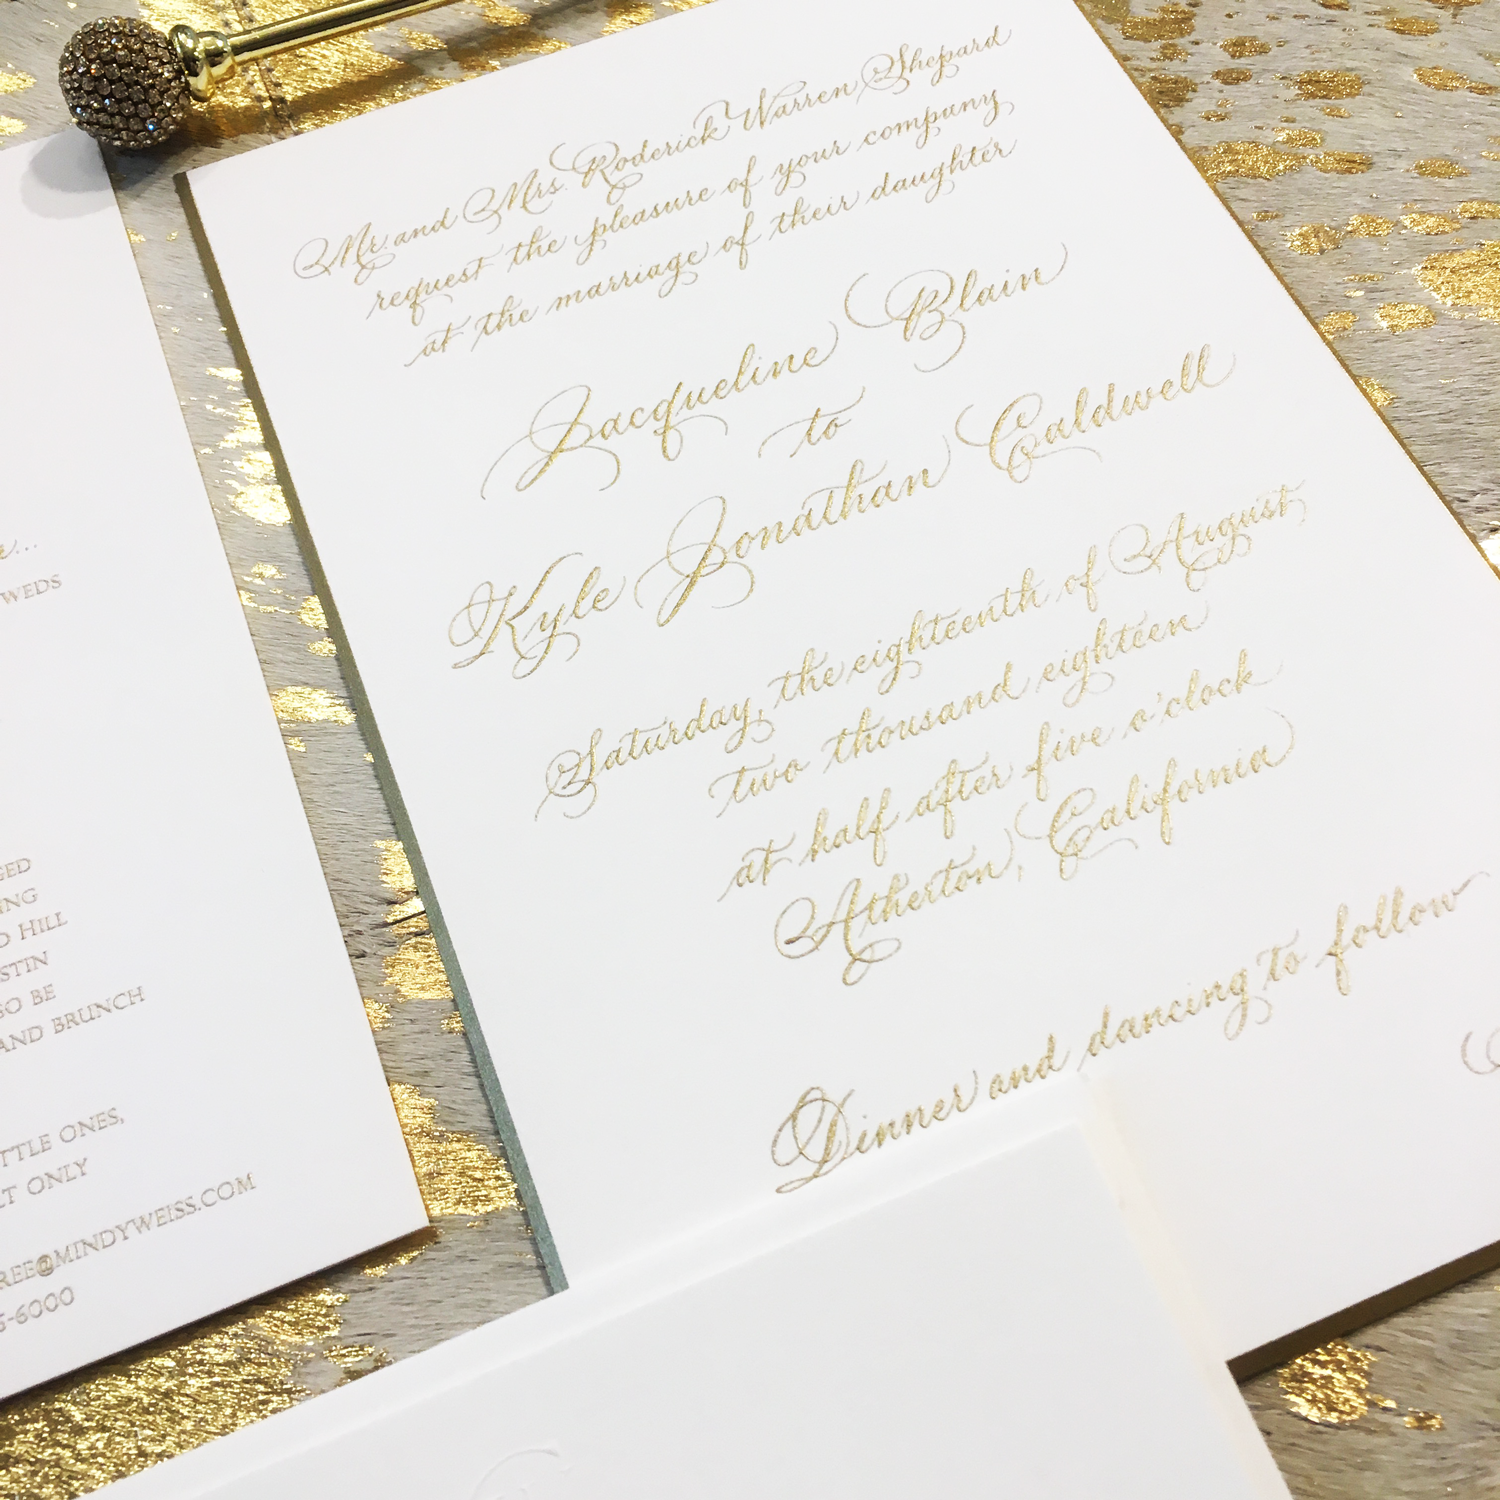 Mr. and Mrs. Roderick Warren Shepard
request the pleasure of your company
at the marriage of their daughter
Jacqueline Blain
to
Kyle Jonathan Caldwell
Saturday, the eighteenth of August
two thousand eighteen
at half after five o'clock
Atherton, California
Dinner and dancing to follow
WEDS
HILL
BE
AND BRUNCH
ONES,
ONLY
@MINDYWEISS.COM
-6000